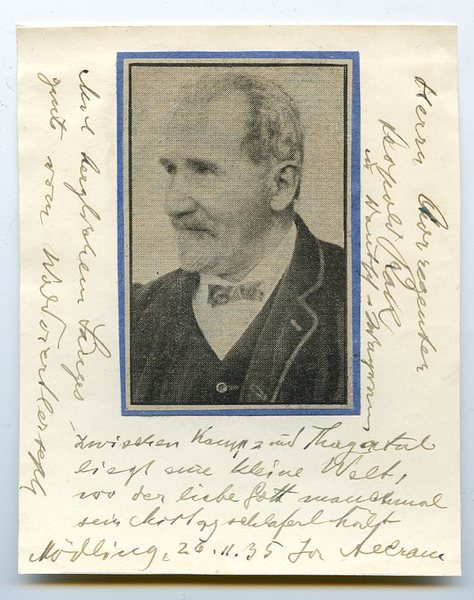 Herrn Chorregenter
Leopold Rak
in
Mit herzlichem Sanges-
gruß vom Waldviertlersepp
zwischen Kamp- und Thayatal
liegt eine kleine Welt,
wo der liebe Gott manchmal
sein Mittagsschlaferl hält
Mödling, 26.11.35 Jos Allram